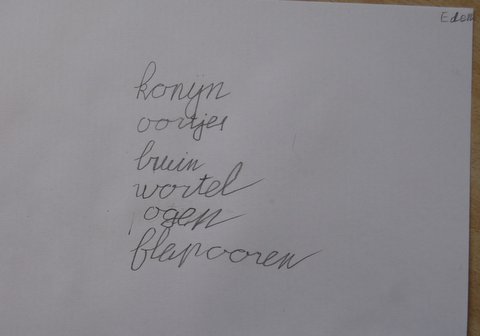 Eden
konijn
oortjes
bruin
wortel
ogen
flapooren